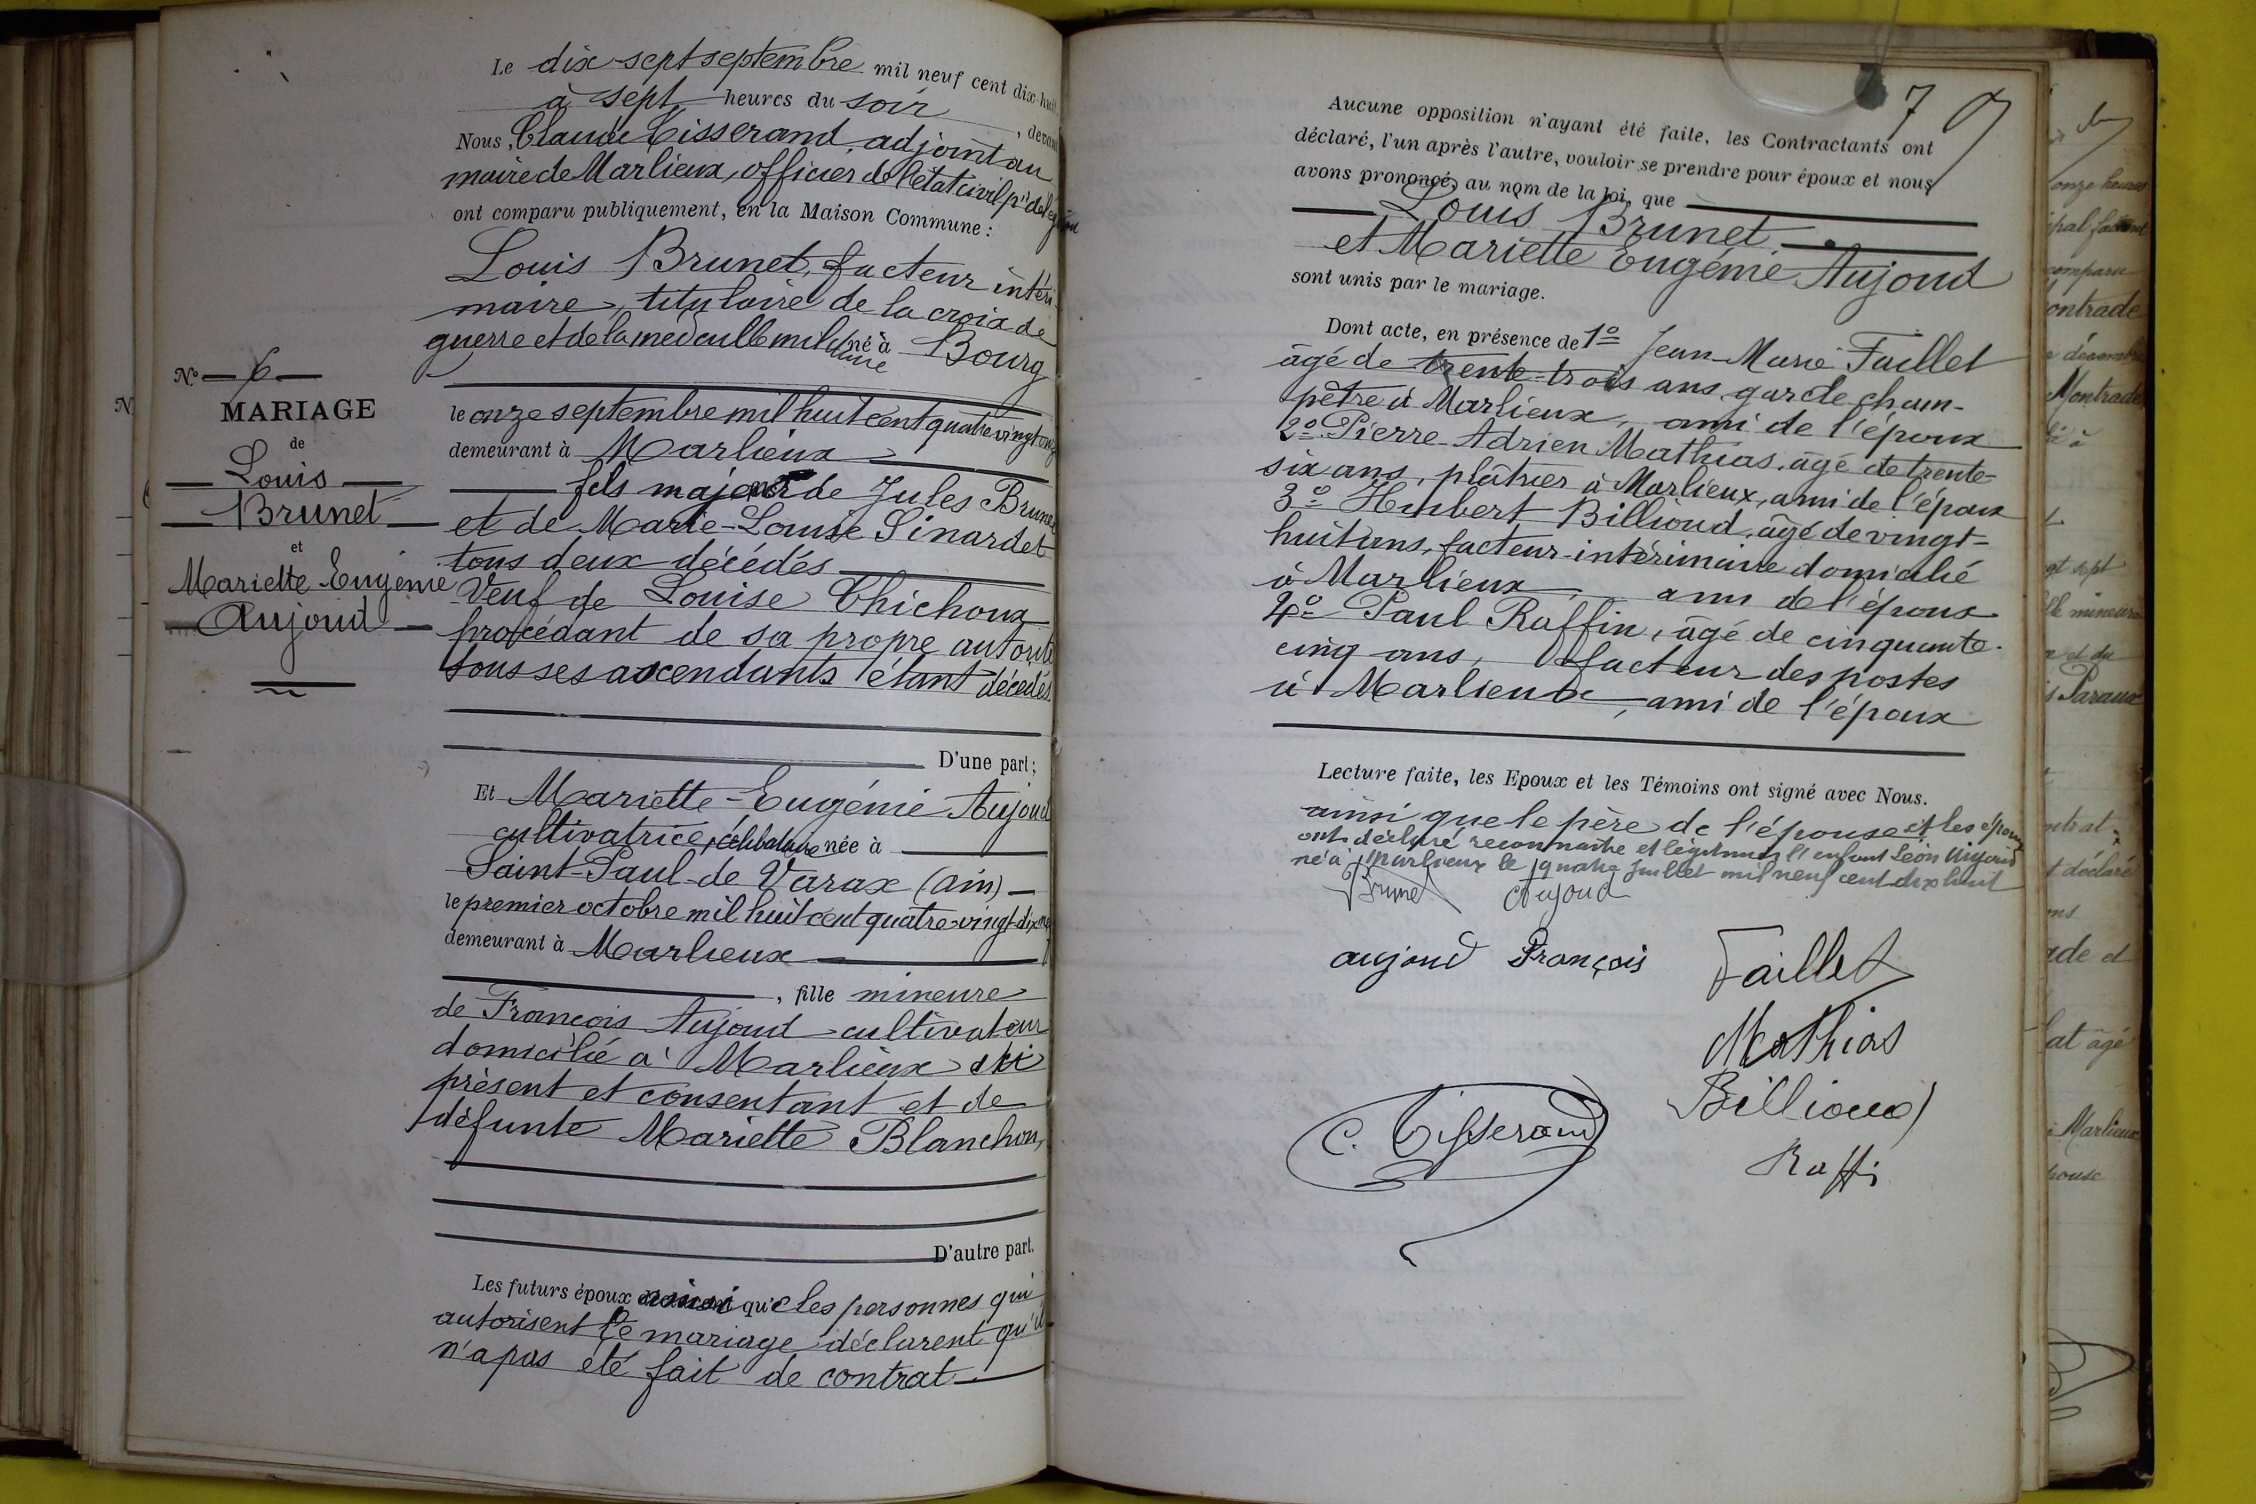 Le dix-sept septembre mil neuf cent dix-huit
à sept heures du soir, devant
Nous, Claude Tisserand, adjoint au
maire de Marlieux, officier de l'état civil pr délégation
ont comparu publiquement, en la Maison Commune :
Louis Brunet, facteur intéri-
maire, titulaire de la croix de
guerre et de la médaille militaire né à Bourg
le onze septembre mil huit cent quatre vingt onze
demeurant à Marlieux
fils majeur de Jules Brunet
et de Marie-Louise Sinardet
tous deux décédés
Veuf de Louise Chichoux
procédant de sa propre autorité
tous ses ascendants étant décédés
D'une part ;
N° 6
MARIAGE
de
Louis
Brunet
et
Mariette Eugénie
Aujoud
Et Mariette-Eugénie Aujoud
cultivatrice, célibataire née à
Saint-Paul-de Varax (Ain)
le premier octobre mil huit cent quatre-vingt-dix neuf
demeurant à Marlieux
, fille mineure
de François Aujoud cultivateur
domicilié à Marlieux ici
présent et consentant et de
défunte Mariette Blanchon,
D'autre part.
Les futurs époux ainsi que les personnes qui
autorisent le mariage déclarent qu'il
n'a pas été fait de contrat
7
Aucune opposition n'ayant été faite, les Contractants ont
déclaré, l'un après l'autre, vouloir se prendre pour époux et nous
avons prononcé, au nom de la loi, que
Louis Brunet
et Mariette Eugénie Aujoud
sont unis par le mariage.
Dont acte, en présence de 1° Jean-Marie Taillet
âgé de trente-trois ans garde cham-
pêtre à Marlieux, ami de l'époux
2° Pierre Adrien Mathias, âgé de trente-
six ans, plâtrier à Marlieux, ami de l'époux
3° Humbert Billioud, âgé de vingt-
huit ans, facteur intérimaire domicilié
à Marlieux ami de l'époux
4° Paul Raffin, âgé de cinquante-
cinq ans, facteur des postes
à Marlieux, ami de l'époux
Lecture faite, les Epoux et les Témoins ont signé avec Nous.
ainsi que le père de l'épouse et les époux
ont déclaré reconnaître et légitimer l'enfant Léon Aujoud
né à Marlieux le quatre juillet mil neuf cent dix huit
Brunet Aujoud
aujoud François Taillet
Mathias
Billioud
C. Tisserand
Raffi
onze heures
comparu
Montrade
Paraux
déclaré
Marlieux